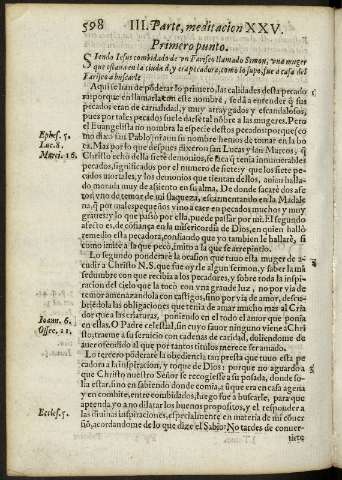 598 III. Parte, meditacion XXV.
Primero punto.
Siendo Iesus combidado de vn Fariseo llamado Simon, vna muger
que estaua en la ciudad, y era pecadora, como lo supo, fue a casa del
Fariseo a buscarle
Aqui se han de põderar lo primero, las calidades desta pecado
ra: porque en llamarla con este nombre, se da a entender q̃ sus
pecados eran de carnalidad, y muy arraygados y escandalosos,
pues por tales pecados suele darse tal nõbre a las mugeres. Pero
el Euangelista no nombra la especie destos pecados porque (co
mo dixo san Pablo) ni aun su nombre hemos de tomar en la bo
Ephes. 5.
ca. Mas por lo que despues dixeron san Lucas y san Marcos, q̃
Luc. 8.
Christo echò della siete demonios,
Marci. 16.
pecados, significados por el numero de siete: y que los siete pe
cados mortales, y los demonios que tientan dellos, auian halla-
do morada muy de assiento en su alma. De donde sacarè dos afe
tos, vno de temor de mi flaqueza, escarmentando en la Madale
na, q̃ por
graues: y lo que passò por ella, puede passar por mi. El segundo
afecto es, de cõfiança en la misericordia de Dios, en quien hallò
remedio esta pecadora, confiando que yo tambien le hallarè, si
como imitè a la que pecò, imito a la que se arrepintio.
Lo segundo ponderarè la ocasion que tuuo esta muger de a-
cudir a Christo N. S. que fue oyrle algun sermon, y saber la mã
sedumbre con que recebia a los pecadores, y sobre todo la inspi
racion del cielo que la tocò con vna grande luz, no por via de
temor amenazandola con castigos, sino por via de amor, descu-
briẽdola las obligaciones que tenia de amar mucho mas al Cria
dor que a las criaturas, poniendo en el todo el amor que ponia
Ioann. 6.
en ellas. O Padre celestial, sin cuyo fauor ninguno viene a Chri
Osseæ. 11.
sto, traeme a su seruicio con cadenas de caridad, doliendome de
auer ofendido al que por tantos titulos merece ser amado.
Lo tercero põderarè la obediencia tan presta que tuuo esta pe
cadora a la inspiracion, y toque de Dios: porque no aguardò a
que Christo nuestro Señor se recogiesse a su posada, donde so-
lia estar, sino en sabiendo donde comia, aũque era en casa agena
y en combite, entre combidados, luego fue a buscarle, para que
aprenda yo a no dilatar los buenos propositos, y el responder a
Eccles. 5.
las diuinas inspiraciones, especialmente en materia de mi cõuer
siõ, acordandome de lo que dize el Sabio: No tardes de conuer
tirte